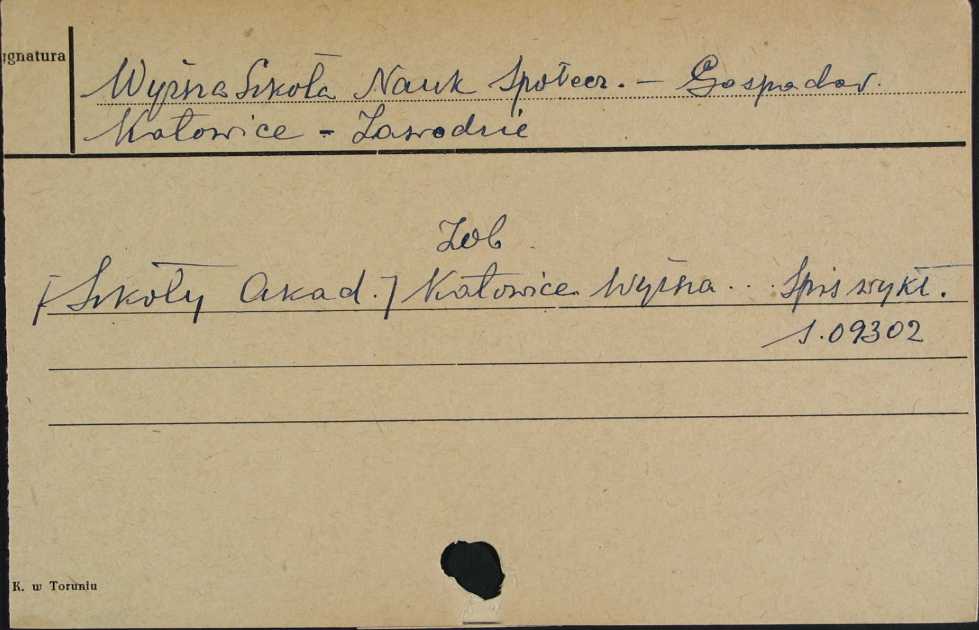 ygnatura
Wyższa Szkoła Nauk Społecz. – Gospodar.
Katowice – Zawodzie
Zob.
[Szkoły Akad.] Katowice. Wyższa... Spis wykł.
S.09302
K. w Toruniu